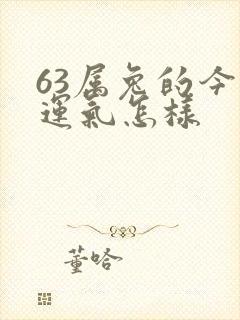 63属兔的今
运气怎样
董哈